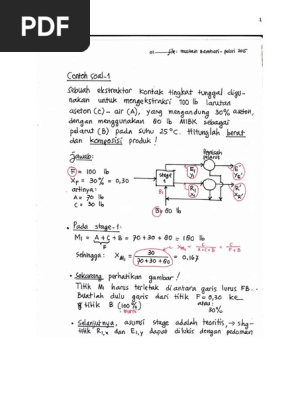 PDF
1
Contoh soal-1
Sebuah ekstraktor kontak tingkat tunggal digu-
nakan untuk mengekstraksi 100 lb larutan
aseton (C) - air (A), yang mengandung 30% aseton,
dengan menggunakan 80 lb MIBK sebagai
pelarut (B) pada suhu 25°C. Hitunglah berat
dan komposisi produk !
Jawab:
F = 100 lb
XF = 30% = 0,30
artinya:
A = 70 lb
C = 30 lb
stage
B = 80 lb
• Pada stage-1:
M1 = A + C + B = 70 + 30 + 80 = 180 lb
F
Sehingga : XM1 = 30 / 70 + 30 + 80 = 0,167
• Sekarang perhatikan gambar !
Titik M1 harus terletak diantara garis lurus FB.
Buatlah dulu garis dari titik F = 0,30 ke
titik B (100%)
30%
• Selanjutnya, asumsi stage adalah teoritis, → shg
titik R1,x dan E1,y dapat dilukis dengan pedoman